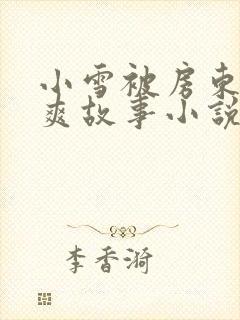 小雪被房东
爽故事小说
李香漪